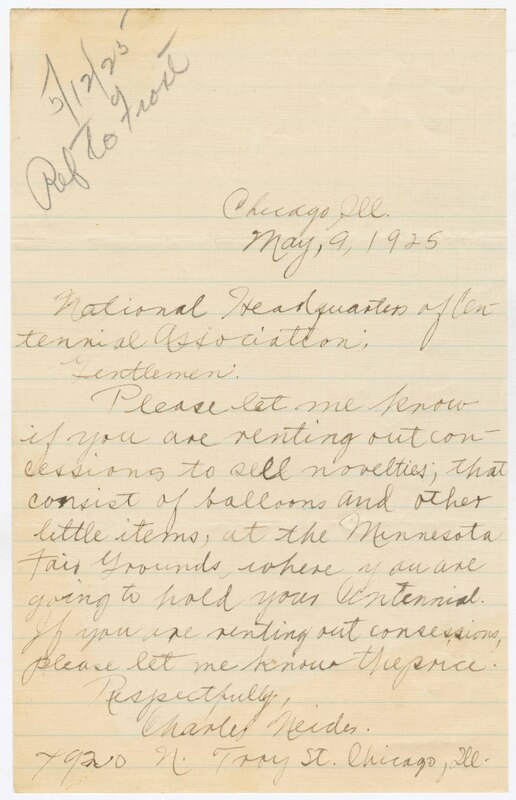 5/12/25
Ref to Frost
Chicago, Ill.
May, 9, 1925
National Headquarters of Cen-
tennial Association;
Gentlemen:
Please let me know
if you are renting out con-
cessions to sell novelties, that
consist of balloons and other
little items, at the Minnesota
Fair Grounds, where you are
going to hold your Centennial.
If you are renting out consessions,
please let me know the price.
Respectfully,
Charles Neider.
4920 N. Troy St. Chicago, Ill.